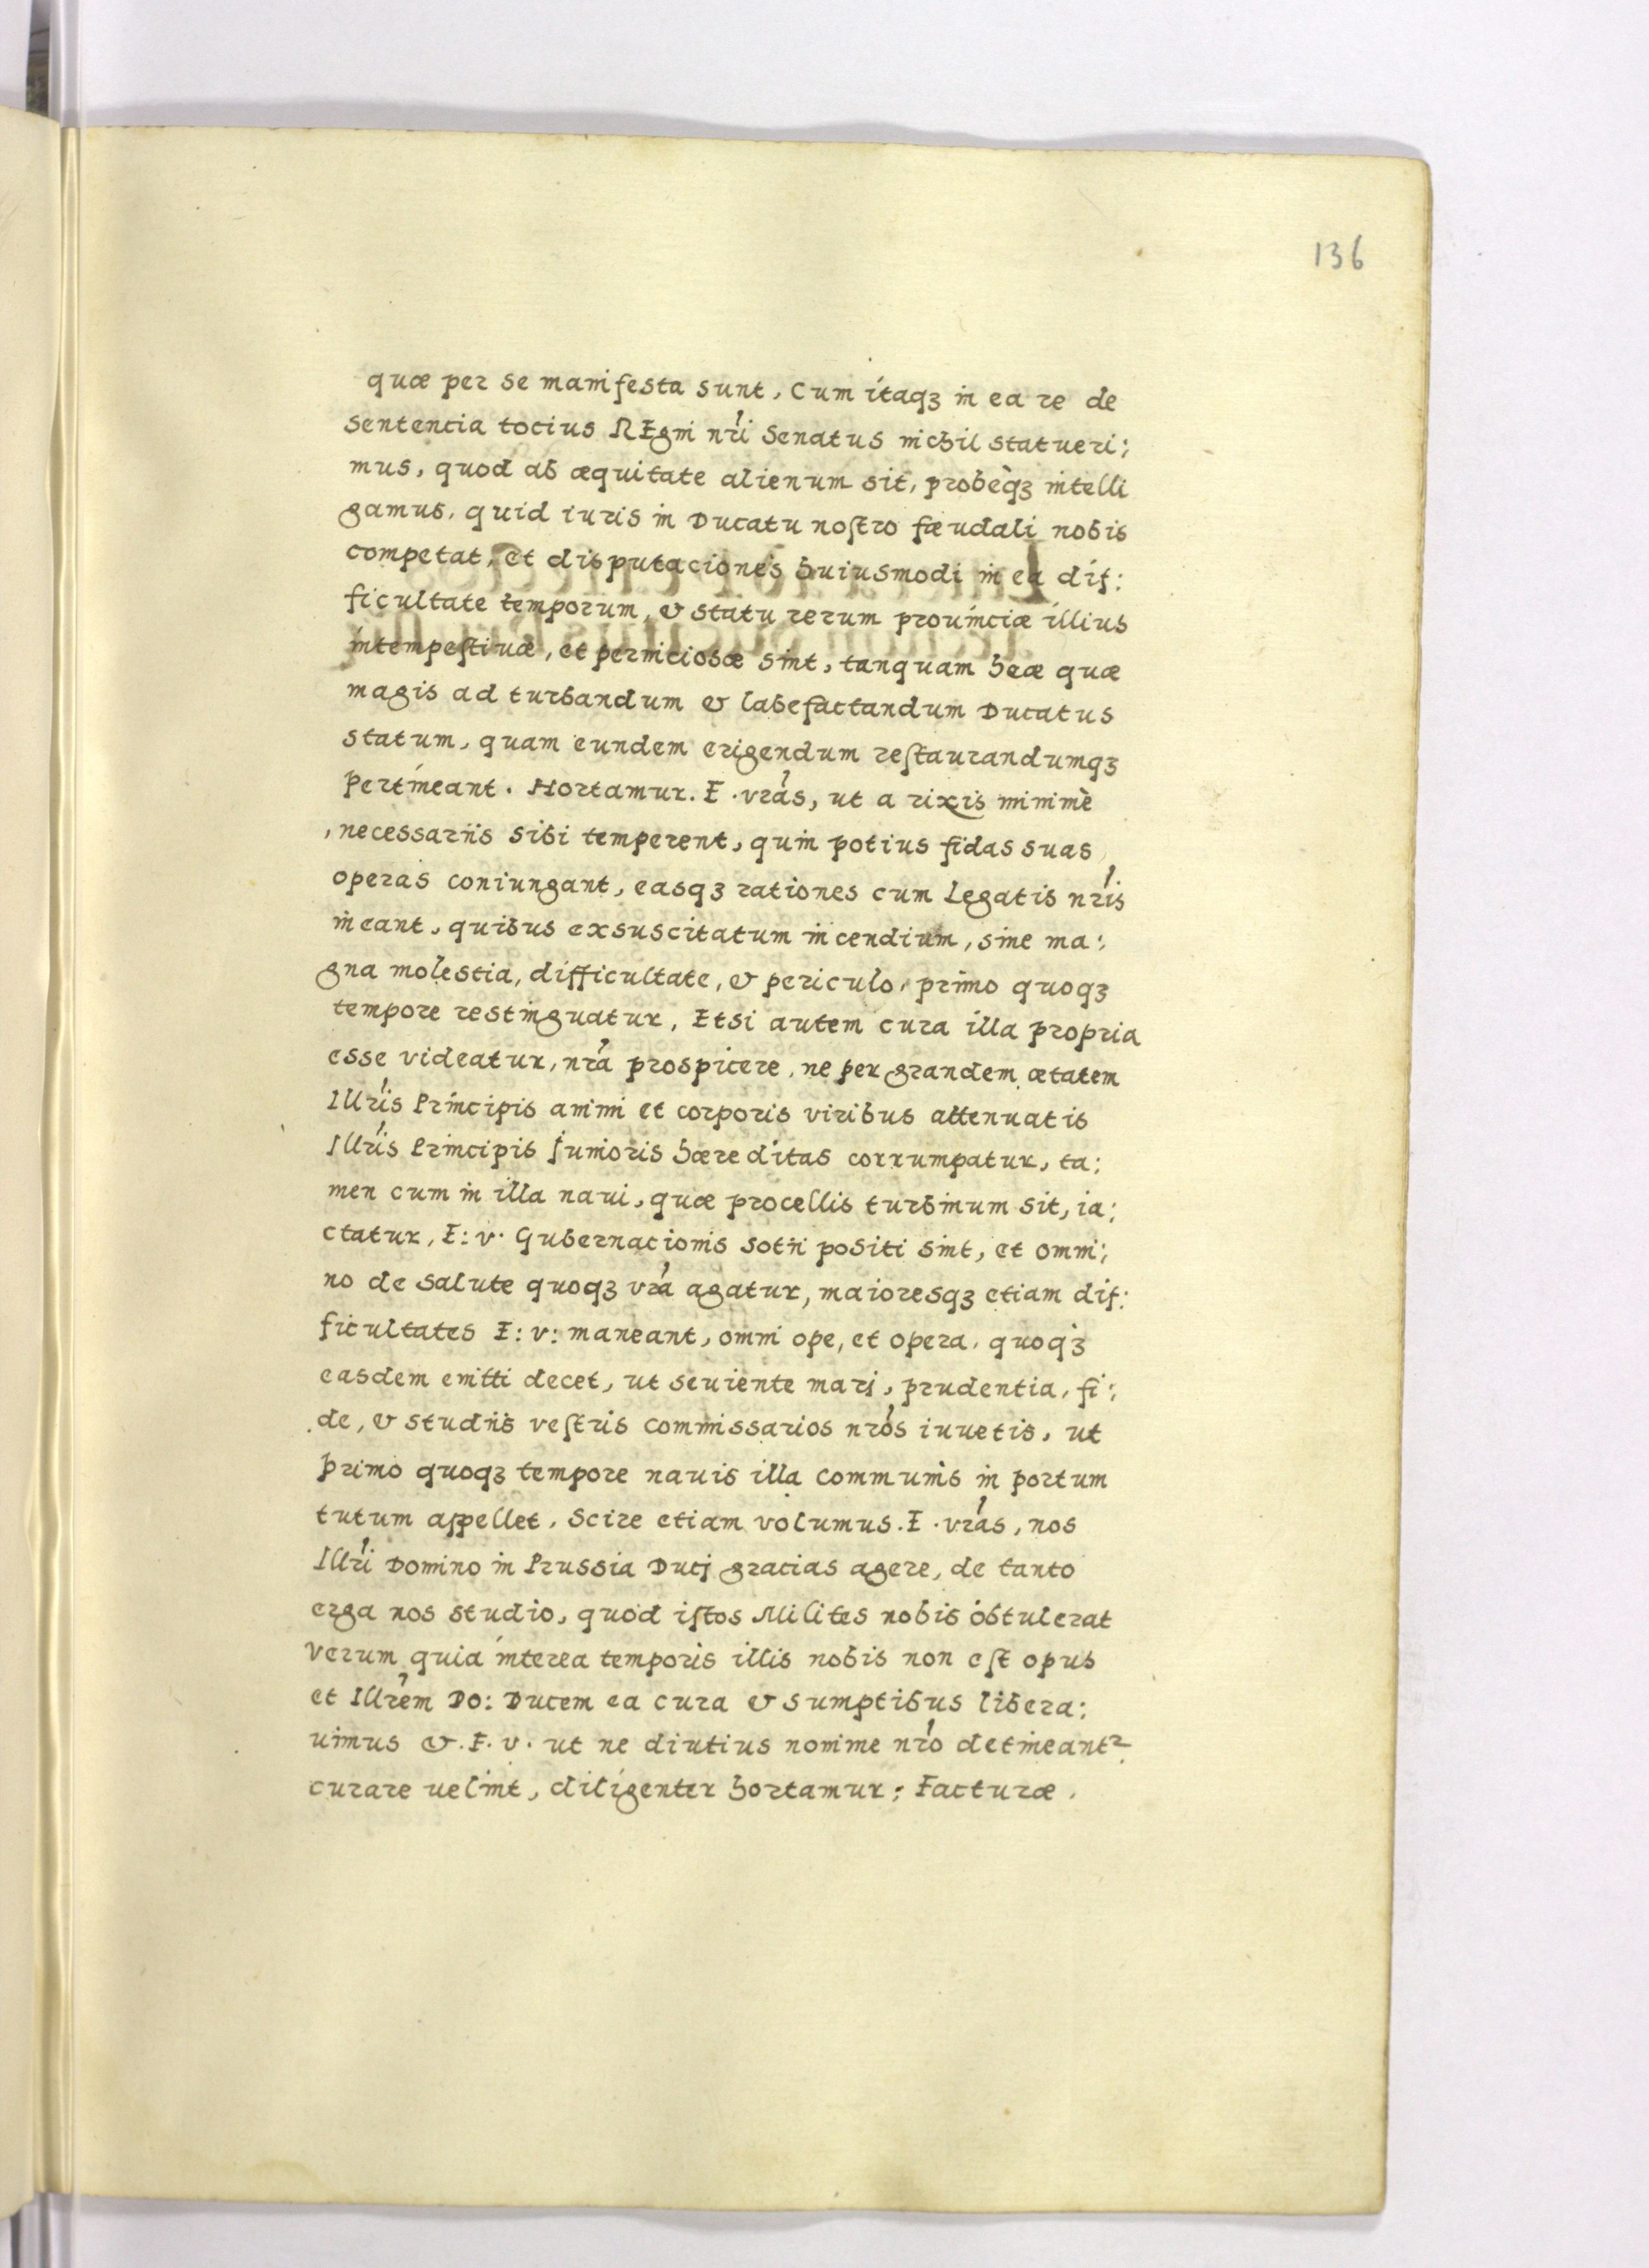 136
quæ per se manifesta sunt, Cum itaqꝫ in ea re de
sententia tocius REgni nr̃i Senatus nichil statueri:
mus, quod ab æquitate alienum sit, probèqꝫ intelli
gamus, quid iuris in Ducatu nostro fœudali nobis
competat, et disputaciones huiusmodi in ea dif:
ficultate temporum, & statu rerum prouinciæ illius
intempestiuæ, et perniciosæ sint, tanquam heæ quæ
magis ad turbandum & labefactandum Ducatus
statum, quam eundem erigendum restaurandumqꝫ
pertineant. Hortamur. F. vr̃as, ut a rixis minimè
necessariis sibi temperent, quin potius fidas suas
operas coniungant, easqꝫ rationes cum Legatis nr̃is
ineant, quibus exsuscitatum incendium, sine ma:
gna molestia, difficultate, & periculo, primo quoqꝫ
tempore restinguatur, Etsi autem cura illa propria
esse videatur, nr̃a prospicere, ne per grandem ætatem
Illr̃is Principis animi et corporis viribus attenuatis
Illr̃is Principis Junioris hæreditas corrumpatur, ta:
men cum in illa naui, quæ procellis turbinum sit, ia:
ctatur, F: v. Gubernacionis sotii positi sint, et omni:
no de salute quoqꝫ vr̃a agatur, maioresqꝫ etiam dif:
ficultates F: v: maneant, omni ope, et opera, quoqꝫ
easdem emitti decet, ut seuiente mari, prudentia, fi:
de, & studiis vestris commissarios nr̃os iuuetis, ut
primo quoqꝫ tempore nauis illa communis in portum
tutum appellet, Scire etiam volumus. F. vr̃as, nos
Illr̃i Domino in Prussia Duci gracias agere, de tanto
erga nos studio, quod istos Milites nobis obtulerat
Verum quia interea temporis illis nobis non est opus
et Illr̃em Do: Ducem ea cura & sumptibus libera:
uimus &. F. v. ut ne diutius nomine nr̃o detineantr
curare uelint, diligenter hortamur: Facturæ.